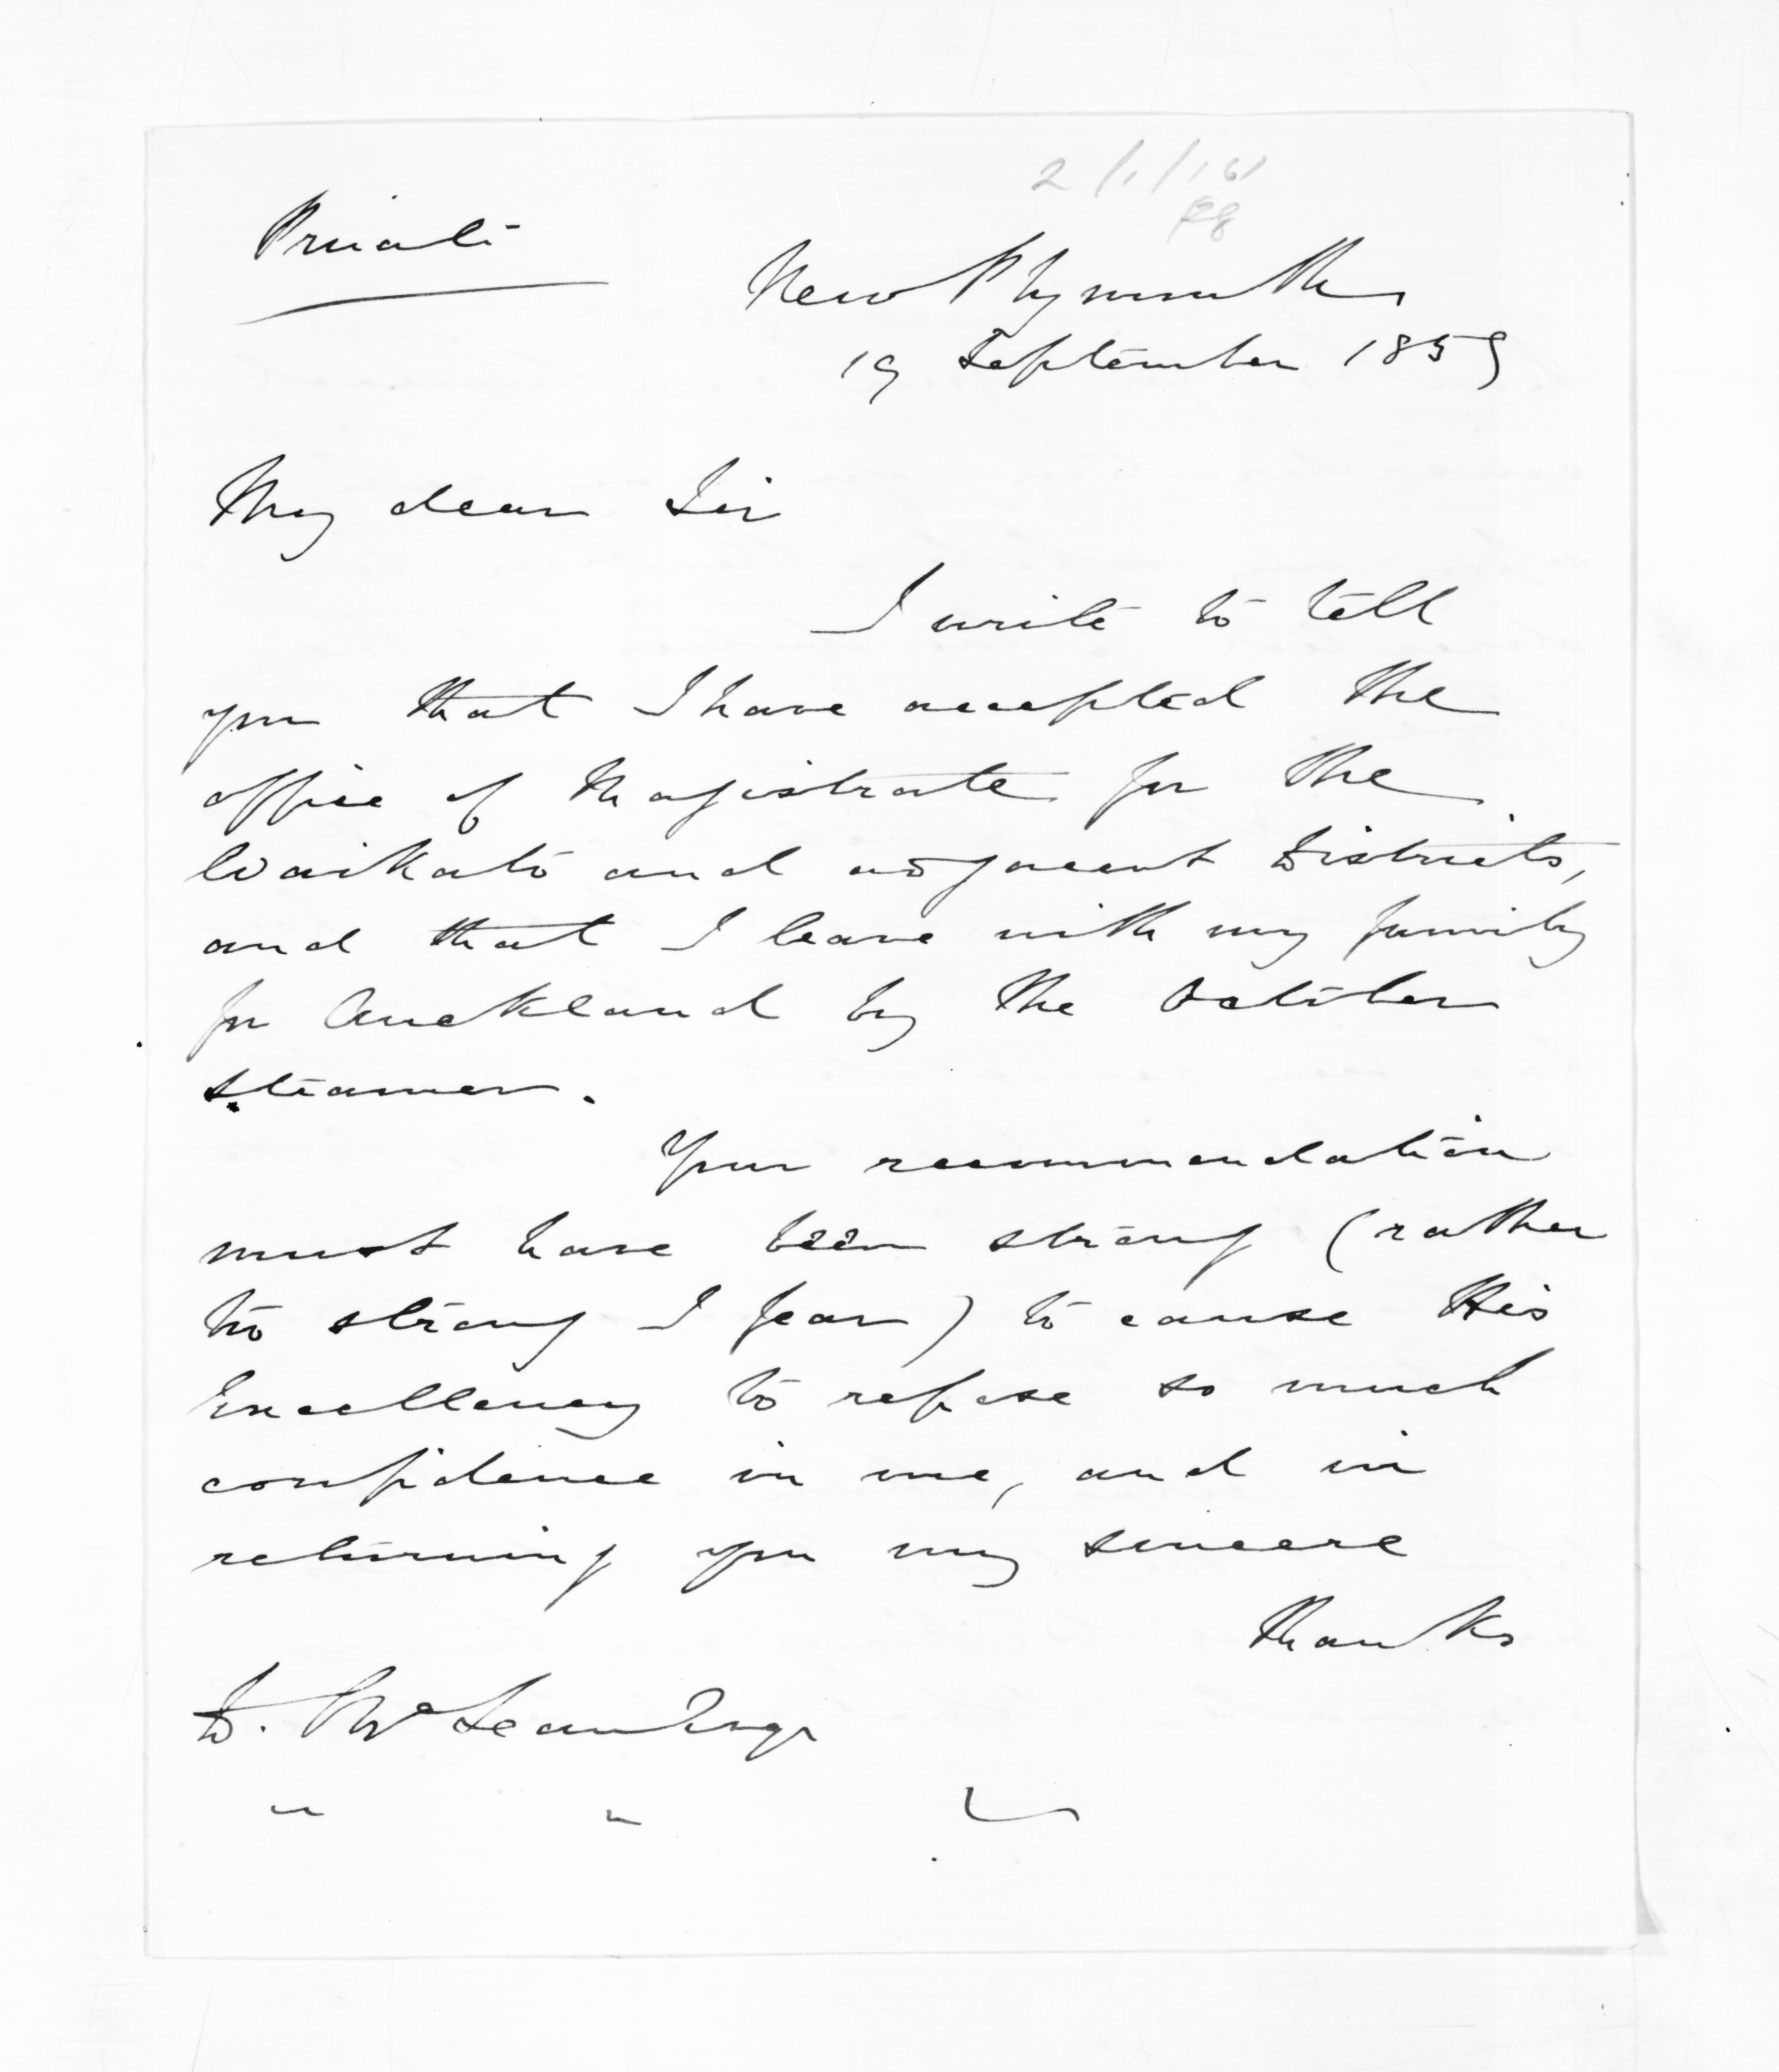 Private
New Plymouth
19 September 1859
My dear Sir
I write to tell
you that I have accepted the
office of Magistrate for the
Waikato and adjacent Districts,
and that I leave with my family
for Auckland by the October
steamer.
Your recommendation
must have been strong (rather
too strong I fear) to cause His
Excellency to repose so much
confidence in me, and in
returning you my sincere
thanks
D. McLean Esqr
" "